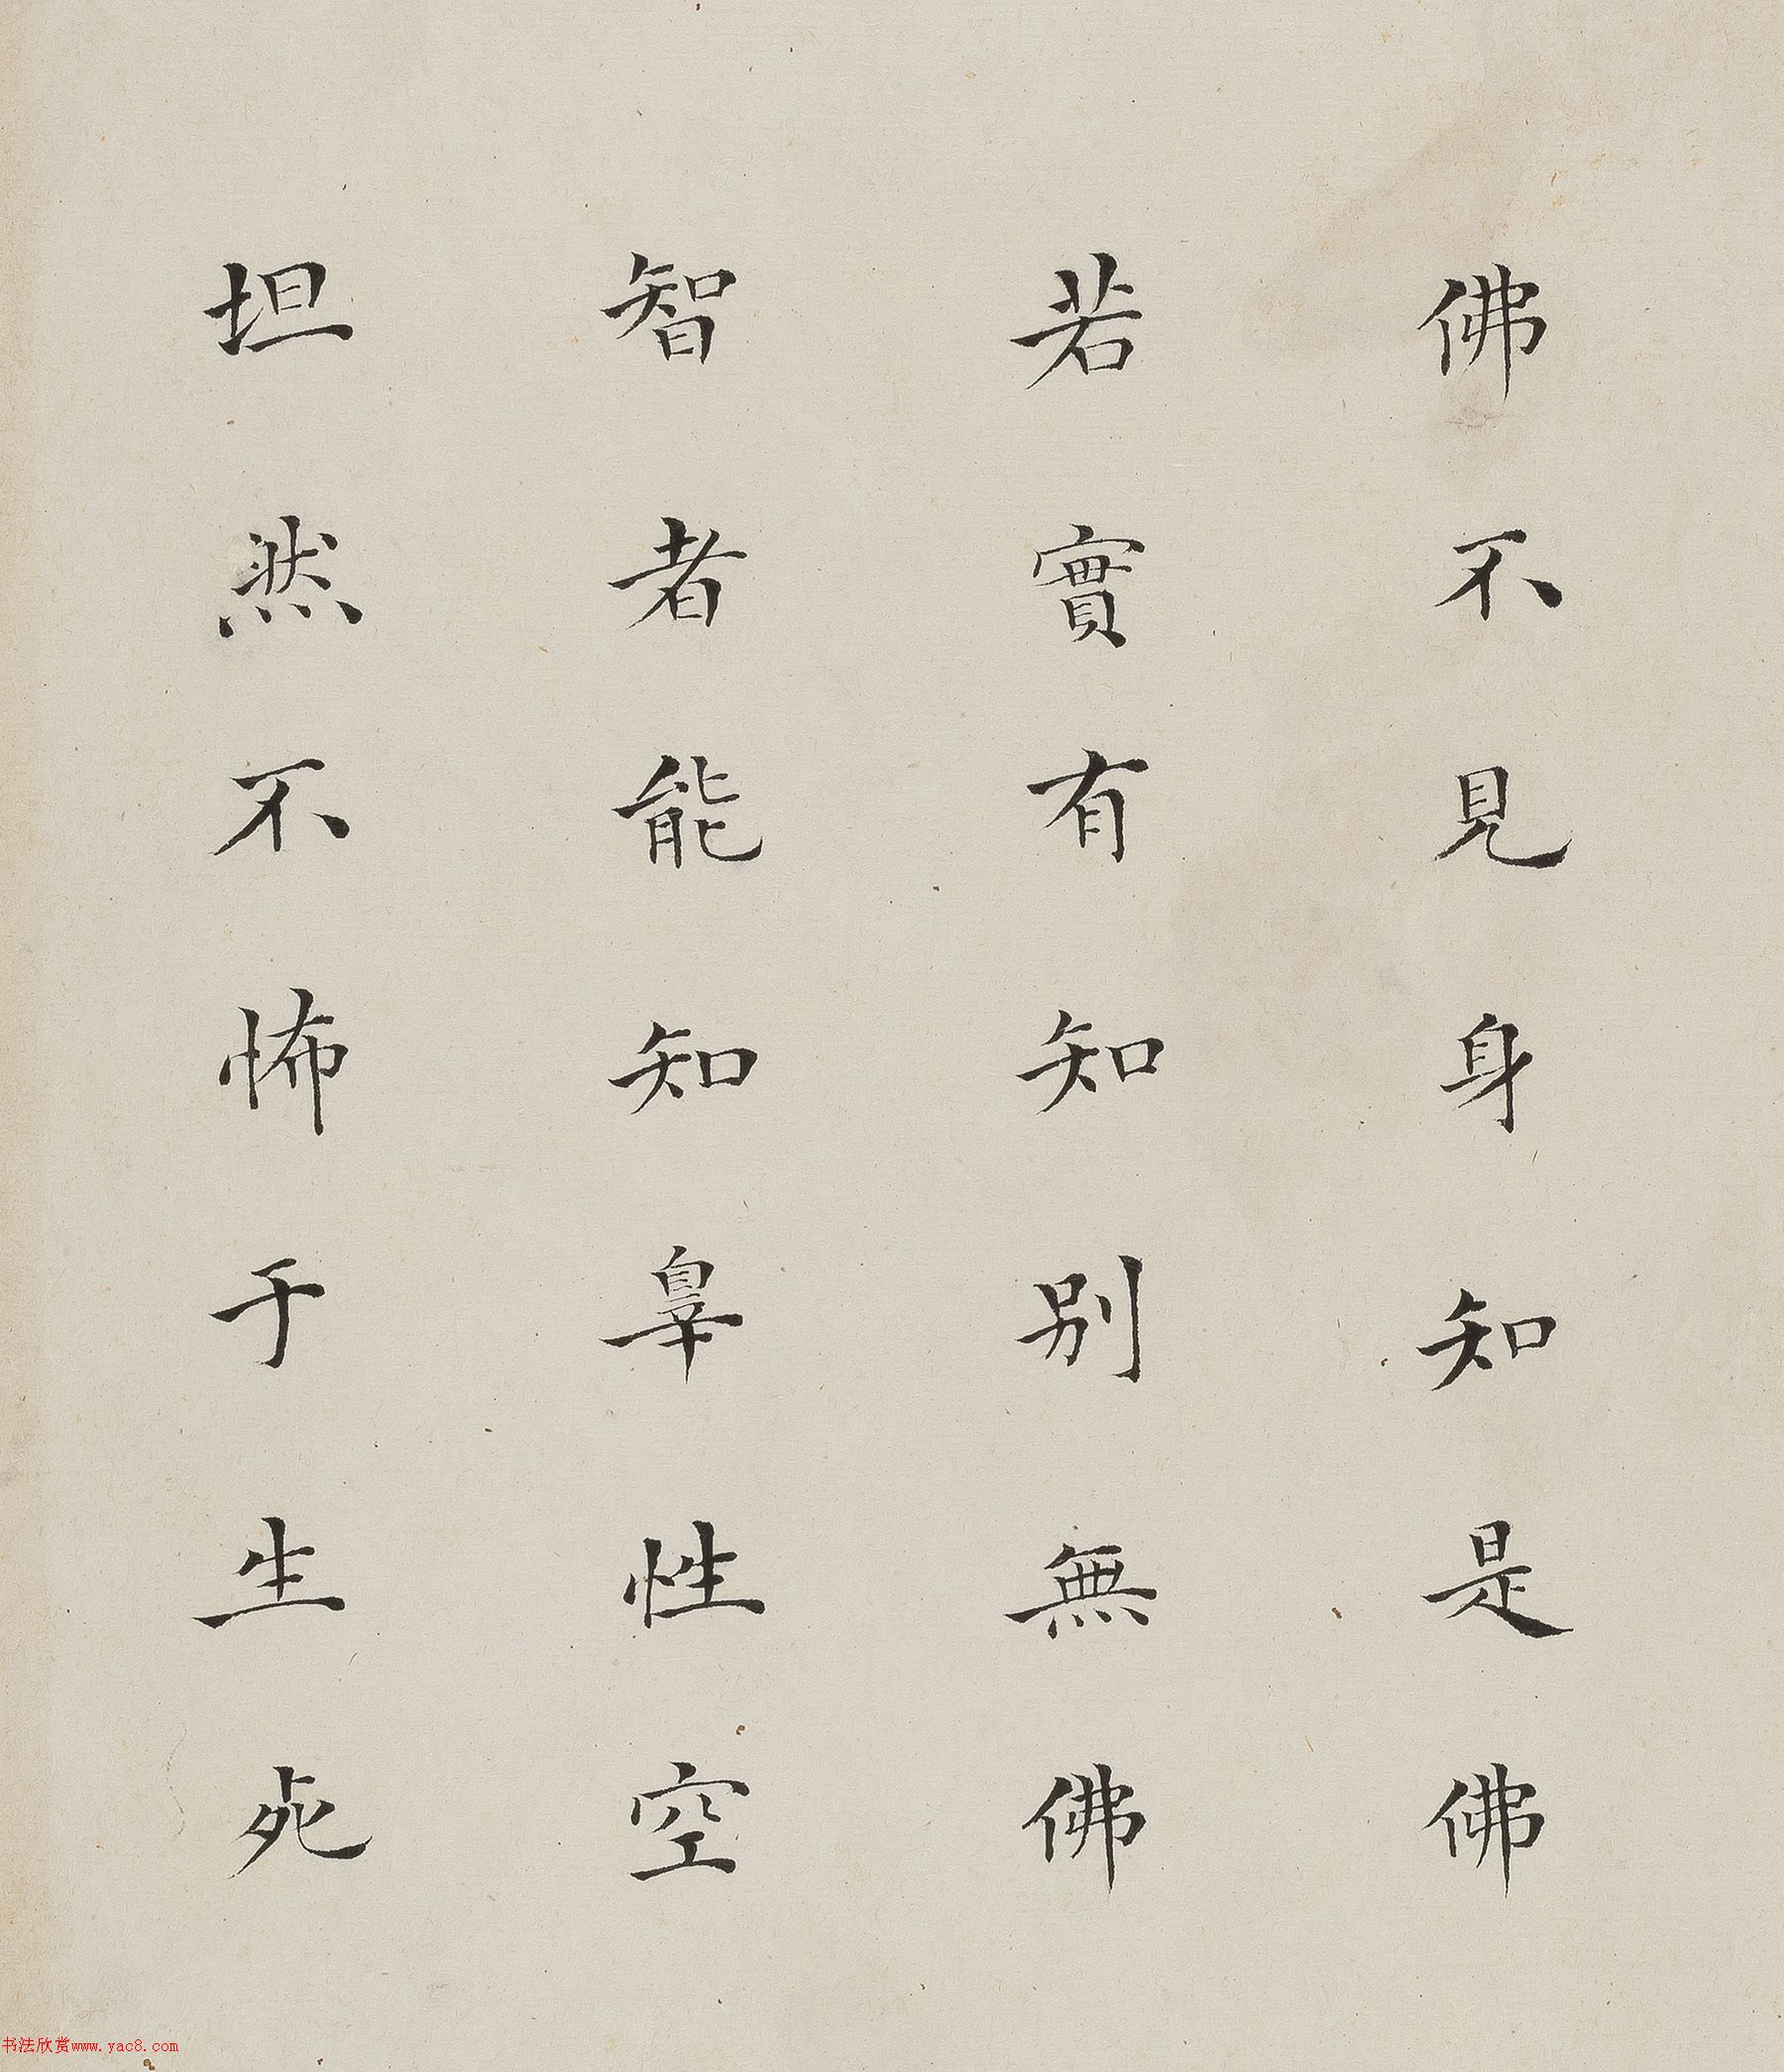 佛不見身知是佛
若實有知別無佛
智者能知辠性空
坦然不怖于生死
书法欣赏www.yac8.com